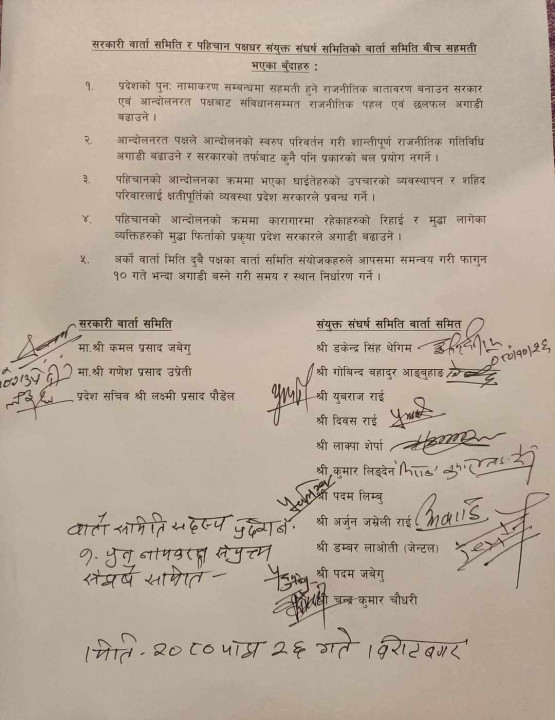 सरकारी वार्ता समिति र पहिचान पक्षधर संयुक्त संघर्ष समितिको वार्ता समिति बीच सहमती
भएका बुँदाहरु :
१. प्रदेशको पुन: नामाकरण सम्बन्धमा सहमती हुने राजनीतिक वातावरण बनाउन सरकार
एवं आन्दोलनरत पक्षबाट संविधानसम्मत राजनीतिक पहल एवं छलफल अगाडी
बढाउने ।
२. आन्दोलनरत पक्षले आन्दोलनको स्वरुप परिवर्तन गरी शान्तीपूर्ण राजनीतिक गतिविधि
अगाडी बढाउने र सरकारको तर्फबाट कुनै पनि प्रकारको बल प्रयोग नगर्ने ।
३. पहिचानको आन्दोलनका क्रममा भएका घाईतेहरुको उपचारको व्यवस्थापन र शहिद
परिवारलाई क्षतीपूर्तिको व्यवस्था प्रदेश सरकारले प्रवन्ध गर्ने ।
४. पहिचानको आन्दोलनको क्रममा कारागारमा रहेकाहरुको रिहाई र मुद्धा लागेका
व्यक्तिहरुको मुद्धा फिर्ताको प्रकृया प्रदेश सरकारले अगाडी बढाउने ।
५. अर्को वार्ता मिति दुबै पक्षका वार्ता समिति संयोजकहरुले आपसमा समन्वय गरी फागुन
१० गते भन्दा अगाडी बस्ने गरी समय र स्थान निर्धारण गर्ने ।
सरकारी वार्ता समिति
मा.श्री कमल प्रसाद जबेगु
मा.श्री गणेश प्रसाद उप्रेती
प्रदेश सचिव श्री लक्ष्मी प्रसाद पौडेल
संयुक्त संघर्ष समिति वार्ता समित
श्री डकेन्द्र सिंह थेगिम
श्री गोबिन्द बहादुर आङ्बुहाङ
श्री युबराज राई
श्री दिवस राई
श्री लाक्पा शेर्पा
श्री कुमार लिङ्देन
श्री पदम लिम्बु
श्री अर्जुन जम्नेली राई
श्री डम्बर लाओती (जेन्टल)
श्री पदम जबेगु
श्री चन्द्र कुमार चौधरी
वार्ता समिति सदस्य
संघर्ष समिति -
मिति - २०८० माघ २६ गते विराटनगर